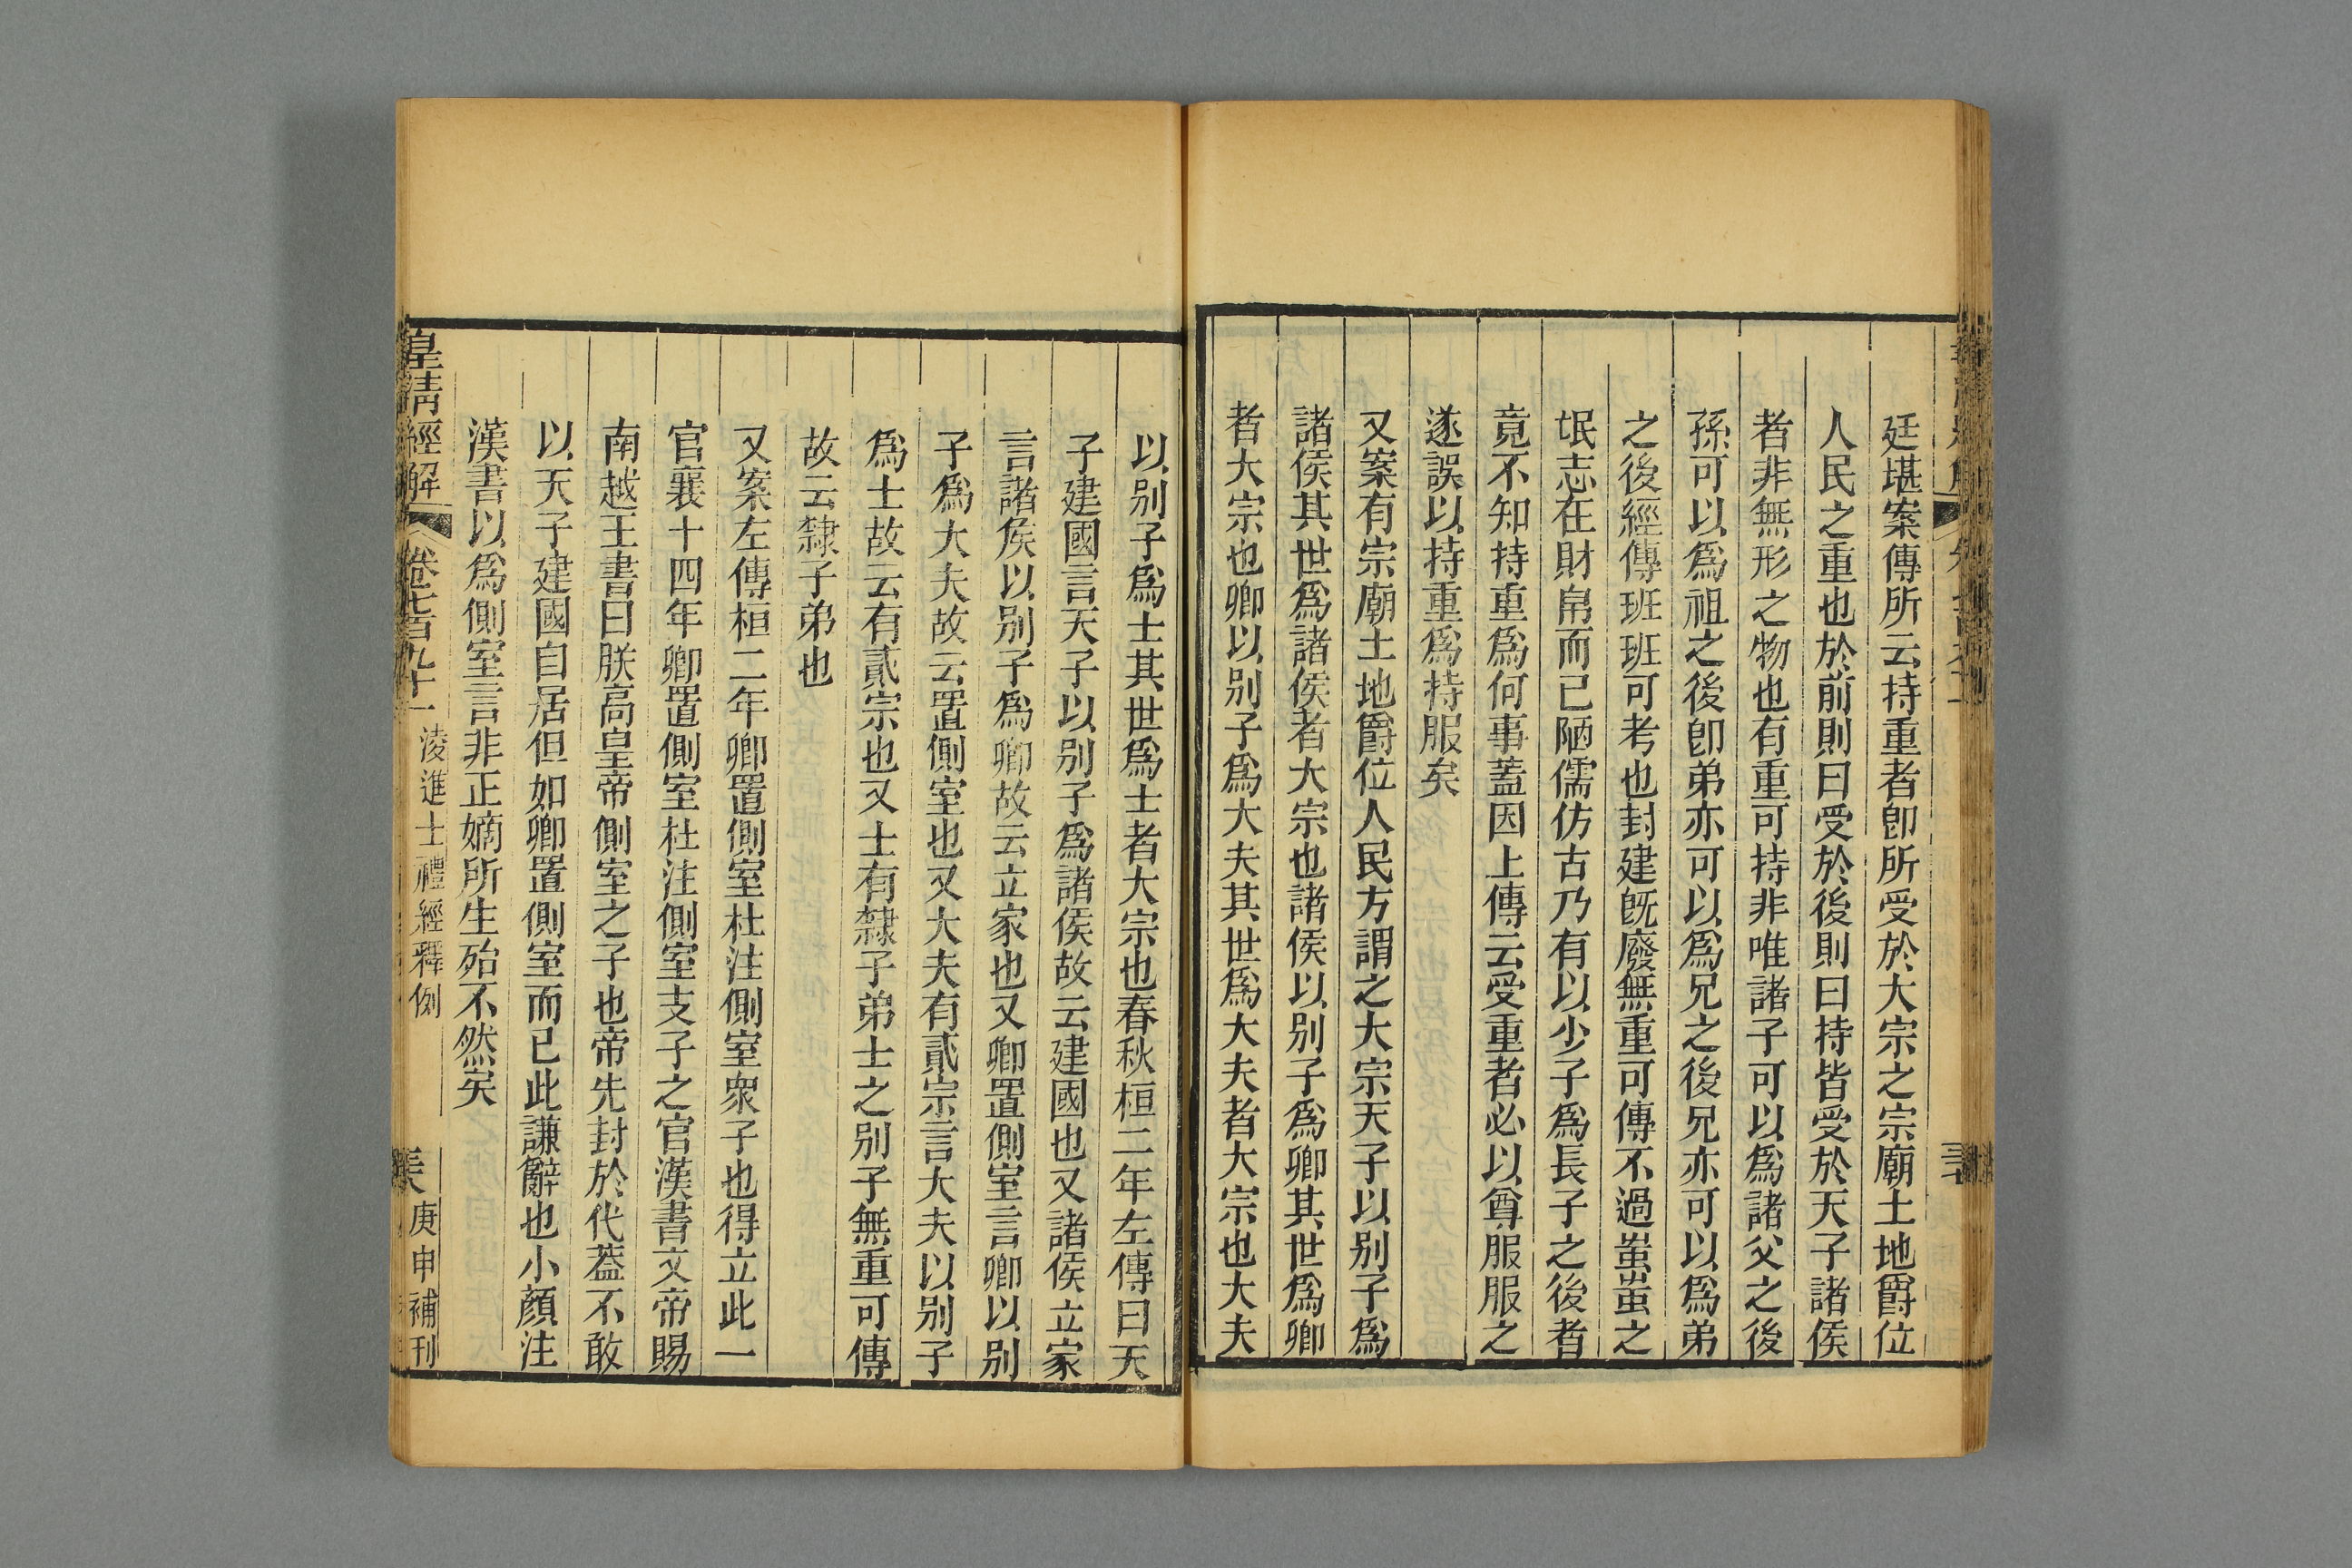 廷堪案傳所云持重者卽所受於大宗之宗廟土地爵位
人民之重也於前則曰受於後則曰持皆受於天子諸侯
者非無形之物也有重可持非唯諸子可以爲諸父之後
孫可以爲祖之後卽弟亦可以爲兄之後兄亦可以爲弟
之後經傳班班可考也封建旣廢無重可傳不過蚩蚩之
氓志在財帛而已陋儒仿古乃有以少子爲長子之後者
竟不知持重爲何事蓋因上傳云受重者必以尊服服之
遂誤以持重爲持服矣
又案有宗廟土地爵位人民方謂之大宗天子以別子爲
諸侯其世爲諸侯者大宗也諸侯以別子爲卿其世爲卿
者大宗也卿以別子爲大夫其世爲大夫者大宗也大夫
以別子爲士其世爲士者大宗也春秋桓二年左傳曰天
子建國言天子以別子爲諸侯故云建國也又諸侯立家
言諸侯以別子爲卿故云立家也又卿置側室言卿以別
子爲大夫故云置側室也又大夫有貳宗言大夫以別子
爲士故云有貳宗也又士有隸子弟士之別子無重可傳
故云隸子弟也
又案左傳桓二年卿置側室杜注側室衆子也得立此一
官襄十四年卿置側室杜注側室支子之官漢書文帝賜
南越王書曰朕高皇帝側室之子也帝先封於代葢不敢
以天子建國自居但如卿置側室而已此謙辭也小顏注
漢書以爲側室言非正嫡所生殆不然矣
皇清經解 卷七百九十一 淩進士禮經釋例 庚申補刊